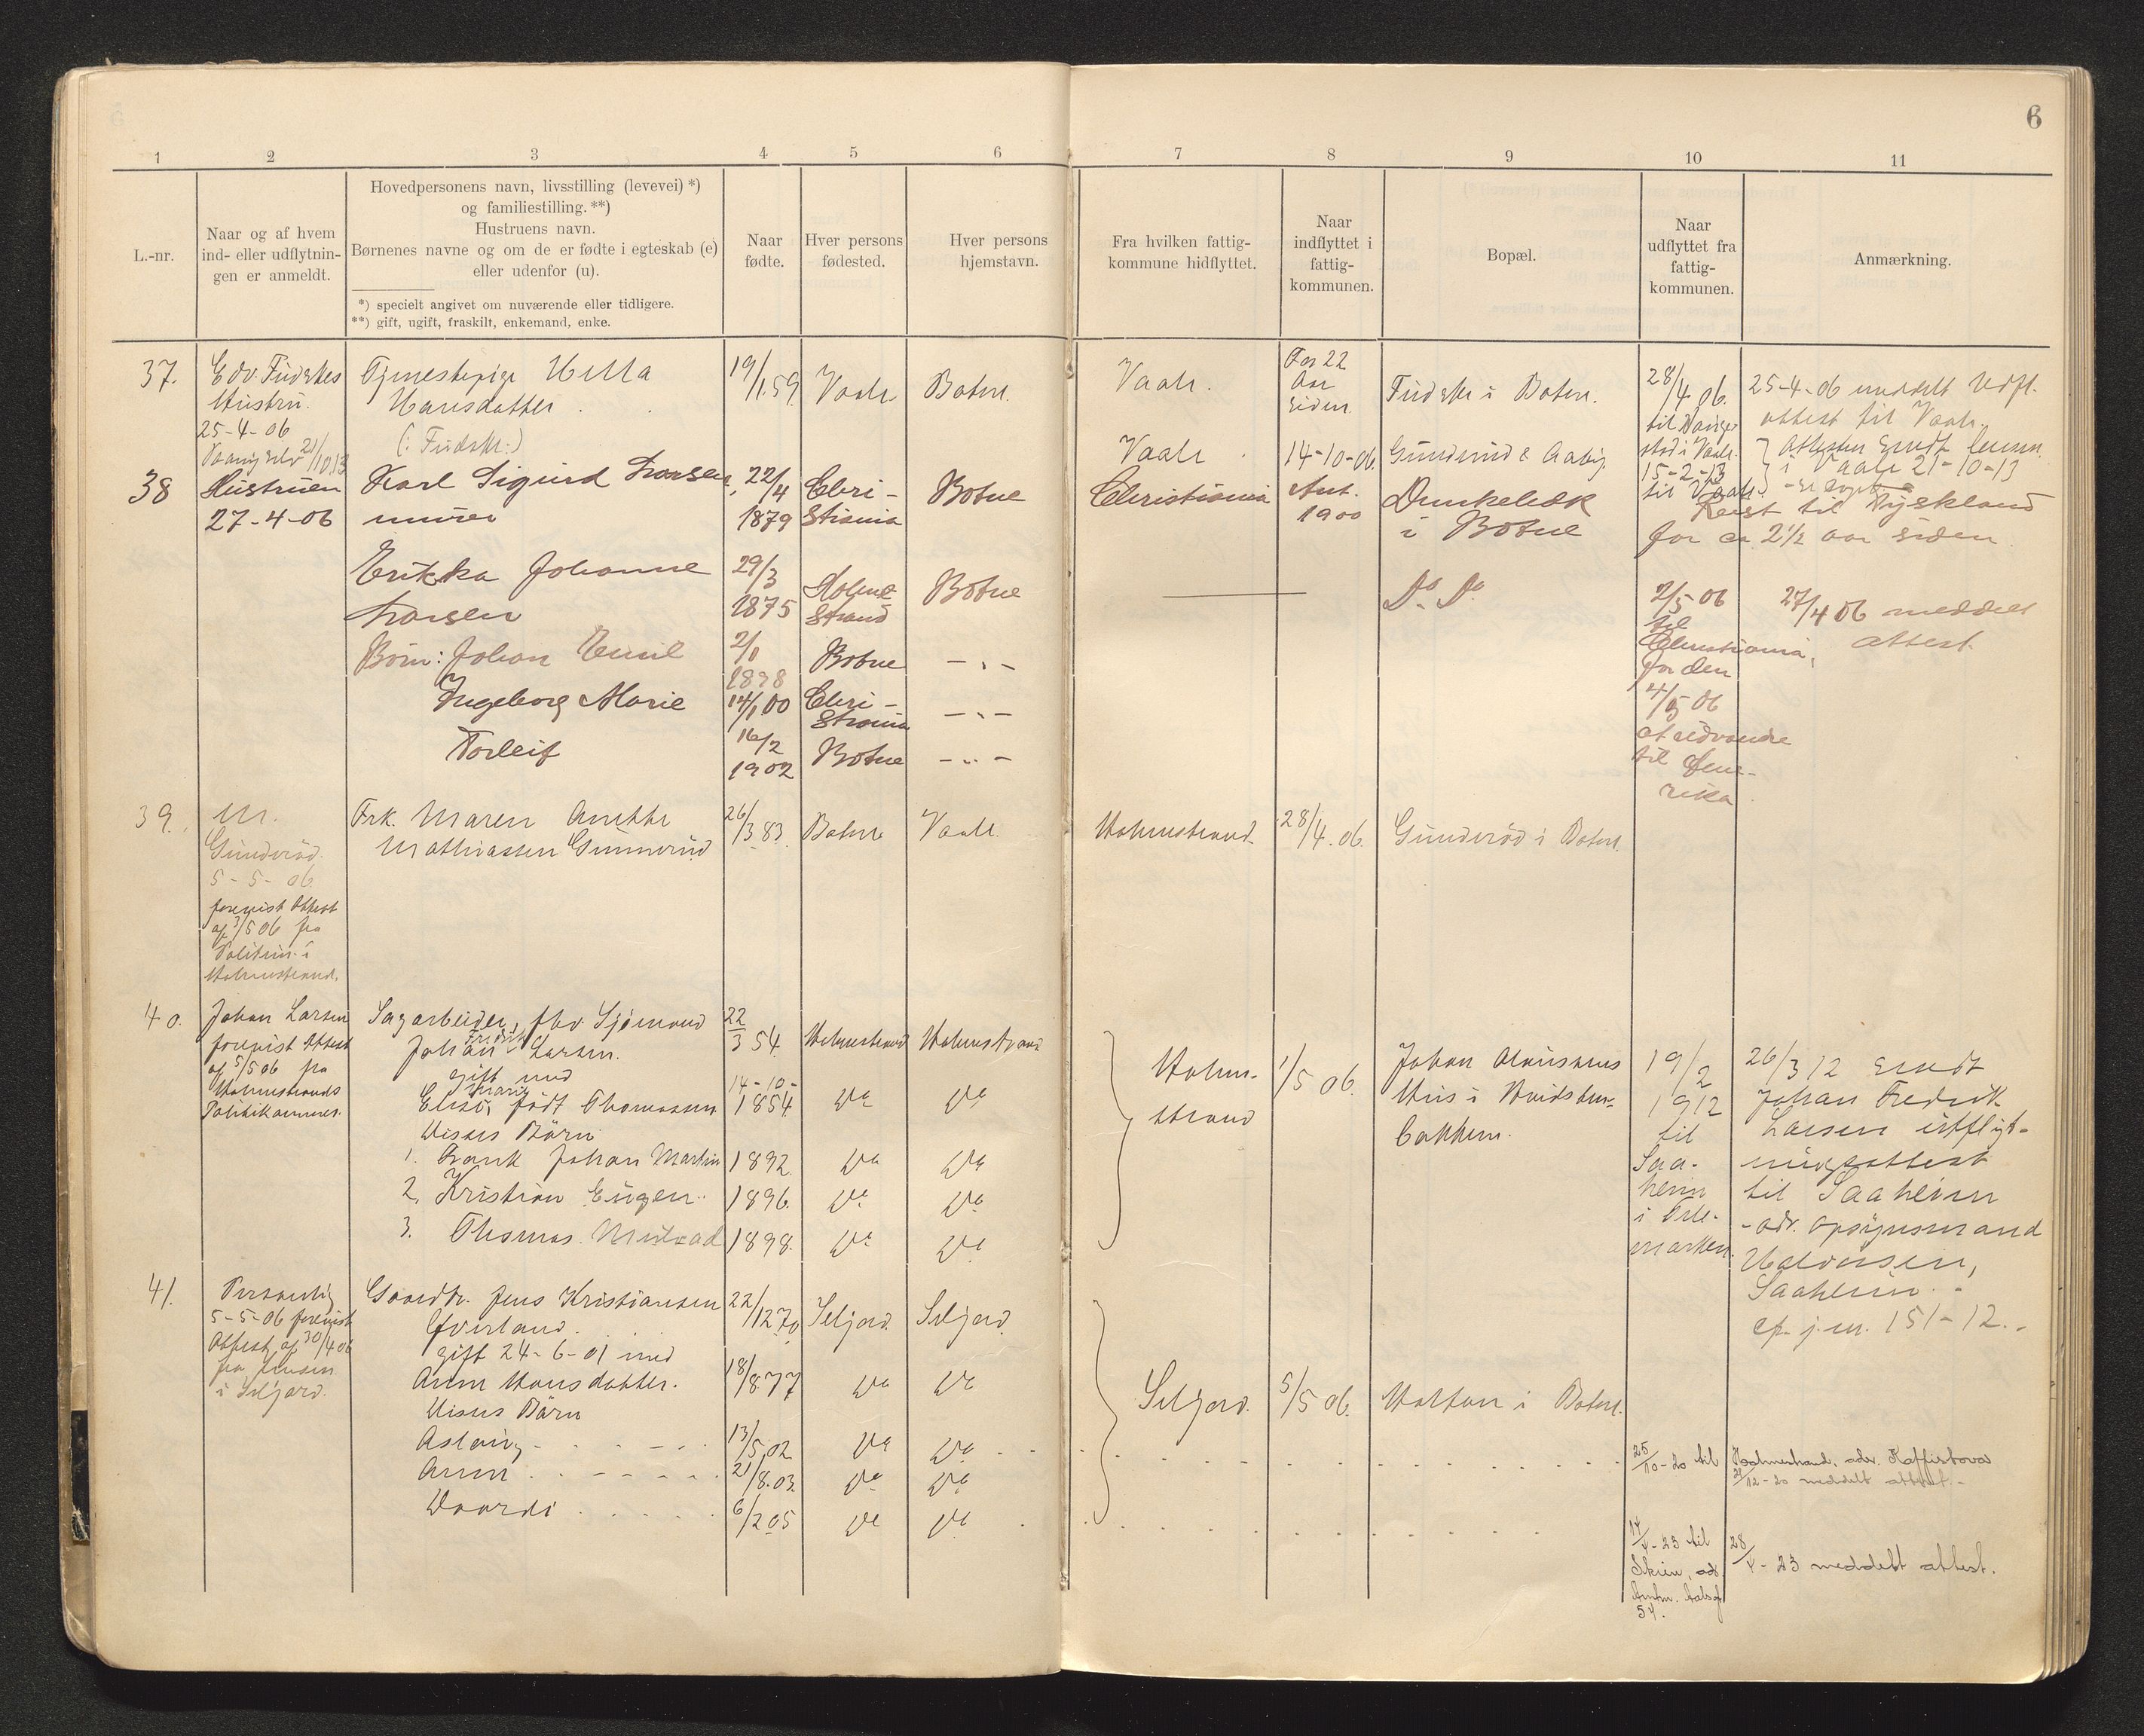 6
1
2
3
4
5
6
7
8
9
10
11
L.-nr.
Naar og af hvem
ind- eller udflytnin-
gen er anmeldt.
Hovedpersonens navn, livsstilling (levevei) *)
og familiestilling. **)
Hustruens navn.
Børnenes navne og om de er fødte i egteskab (e)
eller udenfor (u).
*) specielt angivet om nuværende eller tidligere.
**) gift, ugift, fraskilt, enkemand, enke.
Naar
fødte.
Hver persons
fødested.
Hver persons
hjemstavn.
Fra hvilken fattig-
kommune hidflyttet.
Naar
indflyttet i
fattig-
kommunen.
Bopæl.
Naar
udflyttet fra
fattig-
kommunen.
Anmærkning.
37.
Edv. Fudskes
Hustru.
25-4-06
21/10 13
Tjenestepige
Hansdatter
19/1.59
Vaale
Botne
Vaale.
For 22
Aar
siden
i Botne.
28/4.06.
til
i Vaale
15-2-13
til Vaale
25-4-06 meddelt Udfl.
attest til Vaale
Vaale
14-10-06
Attesten sendt lensm.
i Vaale 21-10-13
38
Hustruen
27-4-06
Karl Sigurd Larsen,
murer
22/4
1879
Chri-
stiania
Botne
Christiania
Aut.
1900
Dunkebæk
i Botne
Reist til Tyskland
for ca 2½ aar siden
Erikka Johanne
Larsen
29/3
1875
Holme-
strand
Botne
Do Do
2/5 06
til
Christiania,
for den
4/5 06
at udvandre
til Ame-
rika
27/4 06 meddelt
attest.
Børn: Johan Emil
2/1
1898
Botne
- " -
Ingeborg Marie
14/1 00
Chri-
stiania
- " -
Torleif
16/2
1902
Botne
- " -
39.
M.
Gunderød
5-5-06
forevist Attest
af 3/5 06 fra
i
Holmestrand.
Frk. Maren Anethe
Mathiassen Gunnerud
26/3.83.
Botne
Vaale
Holmestrand
28/4.06.
Gunderød i Botne.
40.
Johan Larsen
forevist Attest
af 5/5 06 fra
Holmestrands
Politikammer.
Sagarbeider, fhv. Sjømand
Johan Fredrik Larsen.
gift med
Elise Marie født Thomassen
Disses Børn
1. Frank Johan Martin
2. Kristian Eugen
3. Thomas
22/3 54.
14-10-
1854
1892
1896
1898.
Holmestrand
Holmestrand
Do
Do
Do
Do
Do
Do
Do
Do
Holme-
strand
1/5 06.
Johan
Hus i
bakken.
19/2
1912
til
Saa-
heim
i Tele-
marken.
26/3 12 sendt
Johan Fredrik
Larsen udflyt-
ningsattest
til Saaheim
- adr. Opsynsmand
Halvorsen,
Saaheim. -
cfr. j.nr. 151-12. -
41.
Personlig
5-5-06 forevist
Attest af 30/4 06
fra lensm.
i Seljord.
Gaardbr. Jens Kristiansen
Øverland.
gift 24-6-01 med
Anne Hansdatter.
Disses Børn
Aslaug
Anne
22/12 70
18/8 77
13/5.02
21/8.03.
6/2 05
Seljord
Seljord
Do
Do
Do
Do
Do
Do
Do
Do
Seljord.
5/5 06.
i Botne.
25/10-20 til
Holmestrand, adr. Kaffistova
21/12-20 meddelt attest. -
14/4-23 til
Skien, adr.
54.
28/4-23 meddelt attest.